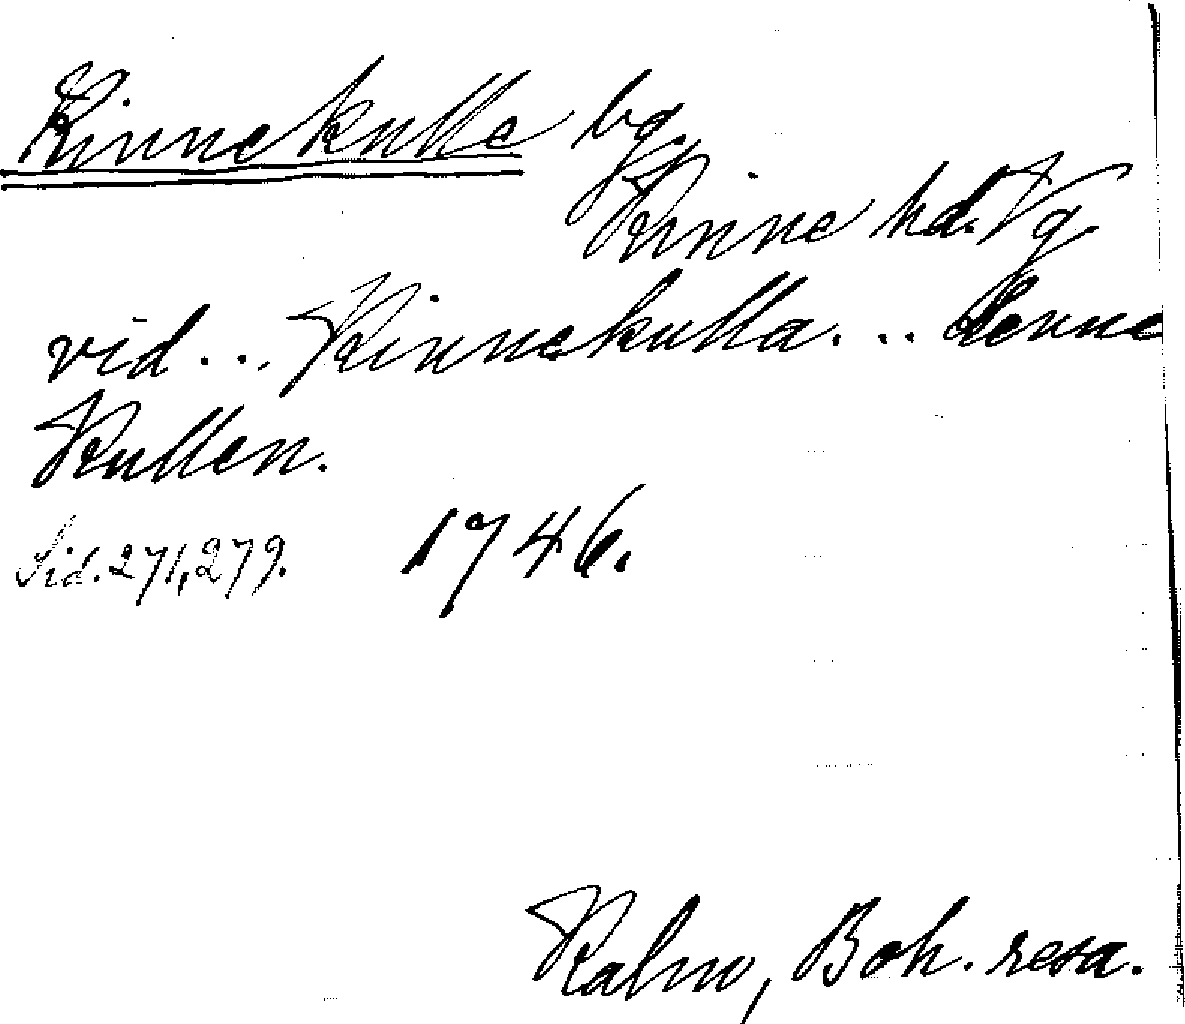 Kinnekulle bg.
Kinne hd. Vg.
vid... Kinnekulla... denne
Kullen.
Sid. 271, 279. 1746.
Kalm, Boh. resa.